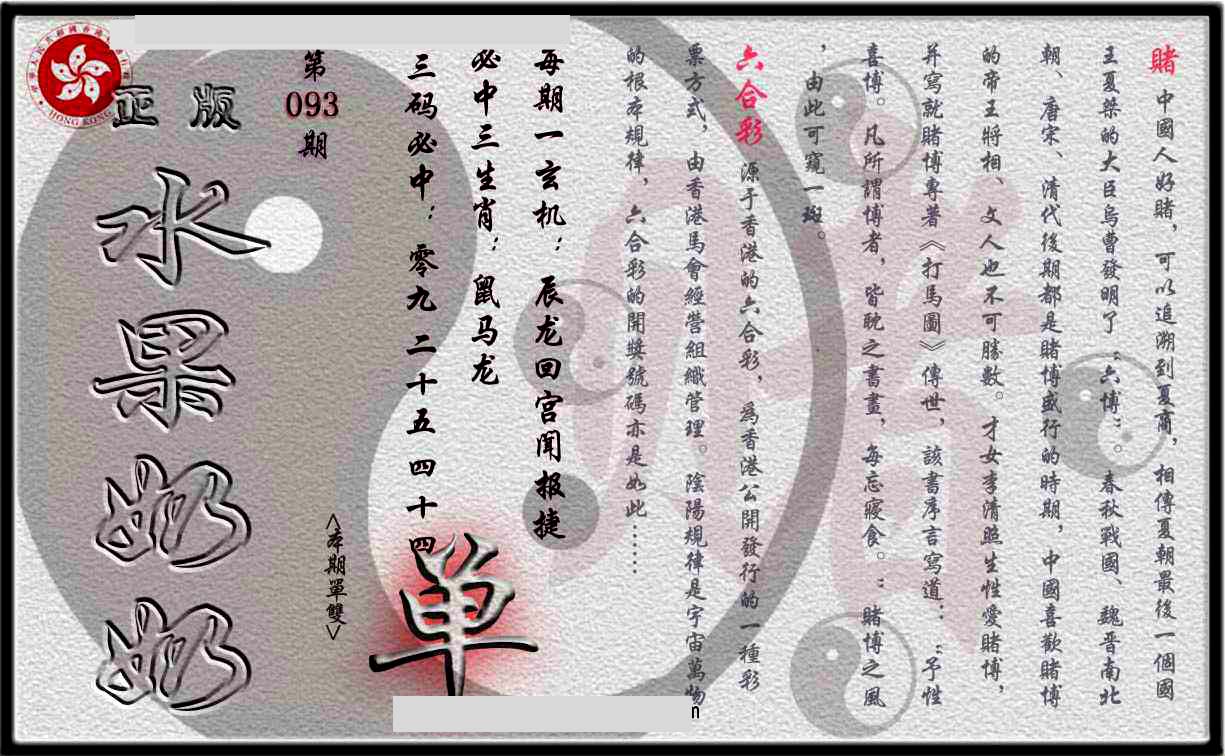 賭 中國人好賭，可以追溯到夏商，相傳夏朝最後一個國
王夏桀的大臣烏曹發明了“六博”。春秋戰國、魏晉南北
朝、唐宋、清代後期都是賭博盛行的時期，中國喜歡賭博
的帝王將相、文人也不可勝數。才女李清照生性愛賭博，
并寫就賭博專著《打馬圖》傳世，該書序言寫道：“予性
喜博。凡所謂博者，皆耽之書畫，每忘寢食。”賭博之風
，由此可窺一斑。
六合彩 源于香港的六合彩，為香港公開發行的一種彩
票方式，由香港馬會經營組織管理。陰陽規律是宇宙萬物
的根本規律，六合彩的開獎號碼亦是如此……
每期一玄机：辰龙回宫闻报捷
必中三生肖：鼠马龙
三码必中：零九二十五四十四
第
093
期
<本期單雙>
单
正版
水果奶奶
HONG KONG
n